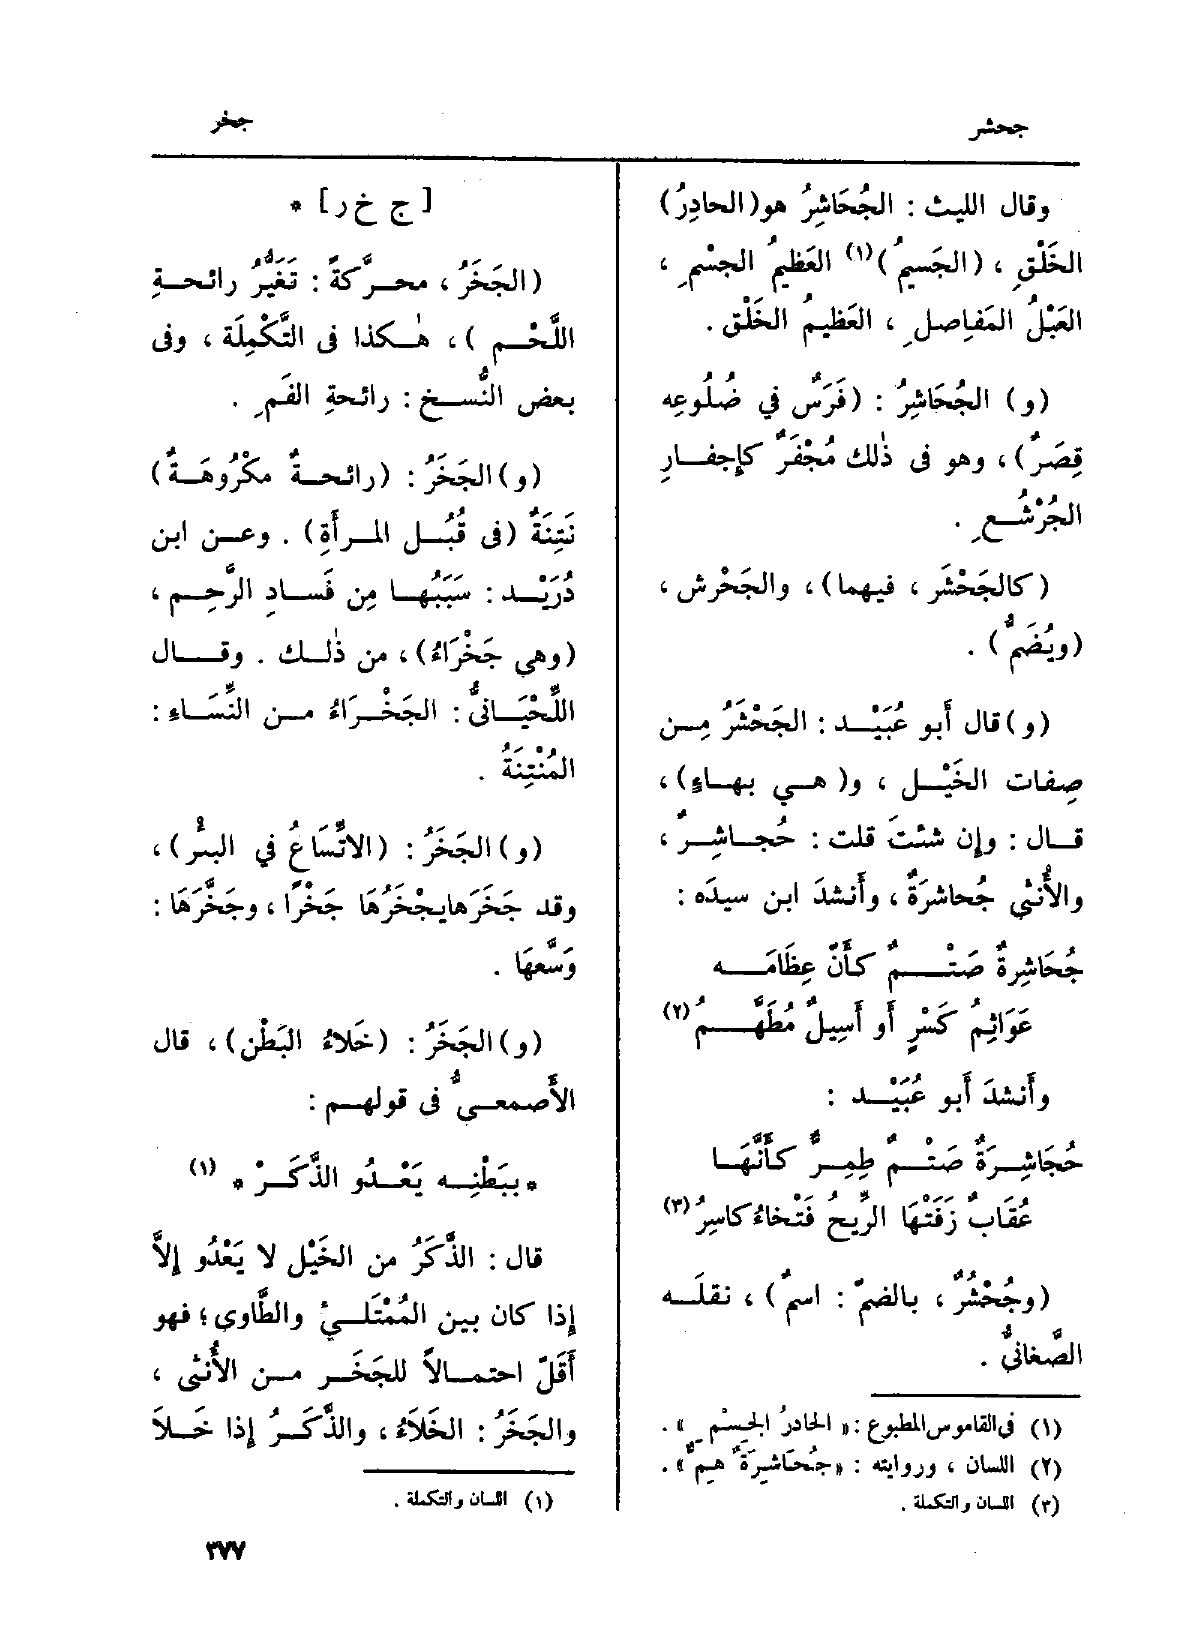 جحشر
جخر
وقال الليث : الجُحَاشِرُ هو (الحادِرُ)
الخَلْقِ ، (الجَسِيمُ) (١) العَظِيمُ الجسْمِ ،
العَبْلُ المَفاصلِ ، العَظِيمُ الخَلْق .
(و) الجُحَاشِرُ : (فَرَسٌ في ضُلُوعِه
قِصَرٌ) ، وهو فى ذٰلك مُجْفَرٌ كإجفارِ
الجُرْشُعِ .
(كالجَحْشَرِ ، فيهما) ، والجَحْرش ،
(ويُضَمُّ) .
(و) قال أَبو عُبَيْد : الجَحْشَرُ مِن
صِفات الخَيْل ، و(هي بهاءٍ) ،
قال : وإن شئتَ قلت : حُجاشِرٌ ،
والأُنثى جُحاشرَةٌ ، وأَنشدَ ابن سيدَه :
جُحَاشِرةٌ صَتْمٌ كأَنّ عِظَامَه
عَوَاثِمُ كَسْرٍ أَو أَسِيلٌ مُطَهَّمُ (٢)
وأَنشدَ أَبو عُبَيْد :
حُجَاشِرَةٌ صَتْمٌ طِمِرٌّ كأَنَّهَا
عُقَابٌ زَفَتْهَا الرِّيحُ فَتْخاءُ كاسِرُ (٣)
(وجُحْشُرٌ ، بالضمّ : اسمٌ) ، نقلَه
الصَّغانىُّ .
(١) فى القاموس المطبوع : « الحادرُ الجِسْمِ » .
(٢) اللسان ، وروايته : « جُحَاشِرَةٌ هِمٌّ » .
(٣) اللسان والتكملة .
[ ج خ ر ] *
(الجَخَرُ ، محرَّكةً : تَغَيُّرُ رائحةِ
اللَّحْم ) ، هٰكذا فى التَّكْمِلَة ، وفى
بعض النُّسخ : رائحةِ الفَمِ .
(و) الجَخَرُ : (رائحةٌ مكْرُوهَةٌ)
نَتِنَةٌ (فى قُبُل المرأَةِ) . وعن ابن
دُرَيْد : سَبَبُها مِن فَسادِ الرَّحِم ،
(وهي جَخْرَاءُ) ، من ذٰلك . وقال
اللِّحْيَانىُّ : الجَخْرَاءُ من النِّسَاءِ :
المُنْتِنَةُ .
(و) الجَخَرُ : (الاتِّسَاعُ في البئْر) ،
وقد جَخَرَها يجْخَرُهَا جَخْرًا ، وجَخَّرَهَا :
وَسَّعهَا .
(و) الجَخَرُ : (خَلاءُ البَطْن) ، قال
الأَصمعىُّ فى قولهم :
* ببَطْنِه يَعْدُو الذَّكَرْ * (١)
قال : الذَّكَرُ من الخَيْل لا يَعْدُو إلاَّ
إذا كان بين المُمْتَلىءِ والطَّاوى ؛ فهو
أَقَلّ احتمالاً للجَخَر من الأُنثى ،
والجَخَرُ : الخَلاَءُ ، والذَّكَرُ إذا خَلاَ
(١) اللسان والتكملة .
٣٧٧